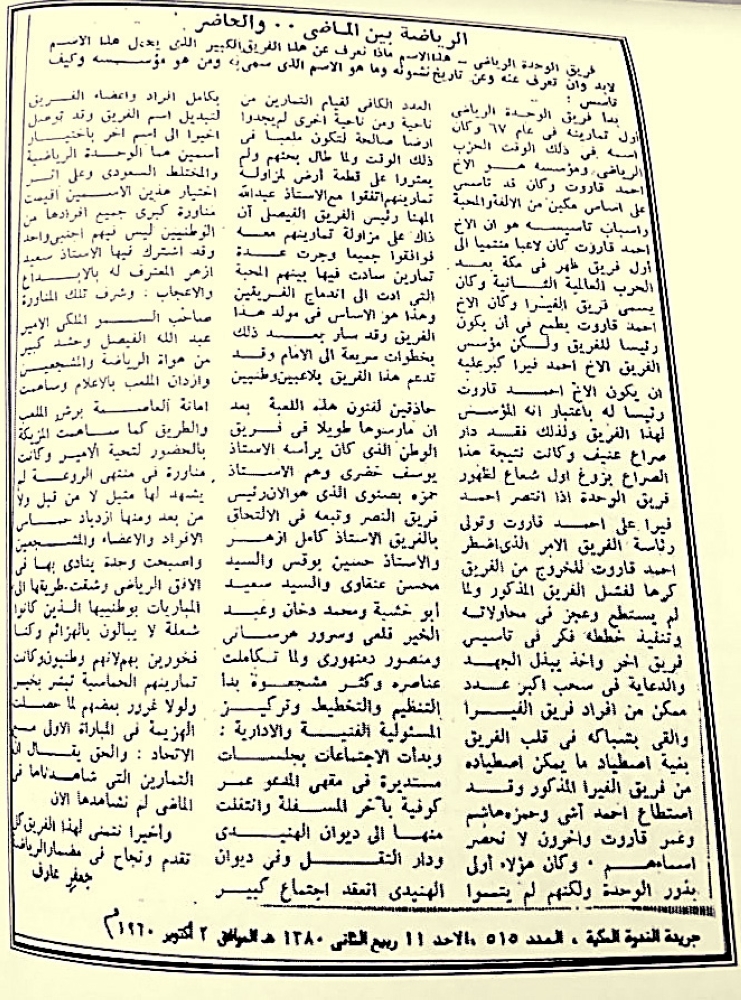 الرياضة بين الماضى ٠٠ والحاضر
فريق الوحدة الرياضى - هذا الاسم ماذا نعرف عن هذا الفريق الكبير الذى يحمل هذا الاسم
لابد وان تعرف عنه وعن تاريخ نشوئه وما هو الاسم الذى سمى به ومن هو مؤسسه وكيف
تأسس :
بدأ فريق الوحدة الرياضى
اول تمارينه فى عام ٦٧ وكان
اسمه فى ذلك الوقت الحزب
الرياضى ومؤسسه هو الاخ
احمد قاروت وكان قد تأسس
على اساس مكين من الالفة والمحبة
واسباب تأسيسه هو ان الاخ
احمد قاروت كان لاعبا منتميا الى
أول فريق ظهر فى مكة بعد
الحرب العالمية الثانية وكان
يسمى فريق الفيرا وكان الاخ
احمد قاروت يطمع فى ان يكون
رئيسا للفريق ولكن مؤسس
الفريق الاخ احمد فيرا كبر عليه
ان يكون الاخ احمد قاروت
رئيسا له باعتبار انه المؤسس
لهذا الفريق ولذلك فقد دار
صراع عنيف وكانت نتيجة هذا
الصراع بزوغ اول شعاع لظهور
فريق الوحدة اذا انتصر احمد
فيرا على احمد قاروت وتولى
رئاسة الفريق الامر الذى اضطر
احمد قاروت للخروج من الفريق
كرها لفشل الفريق المذكور ولما
لم يستطع وعجز فى محاولاته
وتنفيذ خططه فكر فى تأسيس
فريق اخر واخذ يبذل الجهد
والدعاية فى سحب اكبر عدد
ممكن من افراد فريق الفيرا
والقى بشباكه فى قلب الفريق
بغية اصطياد ما يمكن اصطياده
من فريق الفيرا المذكور وقد
استطاع احمد آشى وحمزه هاشم
وعمر قاروت واخرون لا نحصر
اسماءهم ٠ وكان هؤلاء أولى
بذور الوحدة ولكنهم لم يتموا
العدد الكافى لقيام التمارين من
ناحية ومن ناحية أخرى لم يجدوا
ارضا صالحة لتكون ملعبا فى
ذلك الوقت ولما طال بحثهم ولم
يعثروا على قطعة أرض لمزاولة
تمارينهم اتفقوا مع الاستاذ عبدالله
المهنا رئيس الفريق الفيصلى آن
ذاك على مزاولة تمارينهم معه
فوافقوا جميعا وجرت عدة
تمارين سادت فيها بينهم المحبة
التى ادت الى اندماج الفريقين
وهذا هو الاساس فى مولد هذا
الفريق وقد سار بعد ذلك
بخطوات سريعة الى الامام وقد
تدعم هذا الفريق بلاعبين وطنيين
حاذقين لفنون هذه اللعبة بعد
ان مارسوها طويلا فى فريق
الوطن الذى كان يرأسه الاستاذ
يوسف خضرى وهم الاستاذ
حمزه بصنوى الذى هو الان رئيس
فريق النصر وتبعه فى الالتحاق
بالفريق الاستاذ كامل ازهر
والاستاذ حسين بوقس والسيد
محسن عنقاوى والسيد سعيد
أبو خشبة ومحمد دخان وعبد
الخير قلمى وسرور هرسانى
ومنصور دمنهورى ولما تكاملت
عناصره وكثر مشجعوه بدأ
التنظيم والتخطيط وتركيز
المسئولية الفنية والادارية :
وبدأت الاجتماعات بجلسات
مستديرة فى مقهى المدعو عمر
كوفية بآخر المسفلة وانتقلت
منها الى ديوان الهنيدى
ودار النقل وفى ديوان
الهنيدى انعقد اجتماع كبير
بكامل افراد واعضاء الفريق
لتبديل اسم الفريق وقد توصل
اخيرا الى اسم اخر باختيار
أسمين هما الوحدة الرياضية
والمختلط السعودى وعلى اثر
اختيار هذين الاسمين أقيمت
مناورة كبرى جميع افرادها من
الوطنيين ليس فيهم اجنبى واحد
وقد اشترك فيها الاستاذ سعيد
ازهر المعترف له بالابداع
والاعجاب : وشرف تلك المناورة
صاحب السمو الملكى الامير
عبد الله الفيصل وحشد كبير
من هواة الرياضة والمشجعين
وازدان الملعب بالاعلام وساهمت
امانة العاصمة برش الملعب
والطريق كما ساهمت المزيكة
بالحضور لتحية الامير وكانت
مناورة فى منتهى الروعة لم
يشهد لها مثيل لا من قبل ولا
من بعد ومنها ازداد حماس
الافراد والاعضاء والمشجعين
واصبحت وحدة ينادى بها فى
الافق الرياضى وشقت طريقها الى
المباريات بوطنييها الذين كانوا
شعلة لا يبالون بالهزائم وكنا
فخورين بهم لانهم وطنيون وكانت
تمارينهم الحماسية تبشر بخير
ولولا غرور بعضهم لما حصلت
الهزيمة فى المباراة الاولى مع
الاتحاد : والحق يقال ان
التمارين التى شاهدناها فى
الماضى لم نشاهدها الان
وأخيرا نتمنى لهذا الفريق كل
تقدم ونجاح فى مضمار الرياضة
جعفر عارف
جريدة الندوة المكية ، العدد ٥١٥ ،الاحد ١١ ربيع الثانى ١٣٨٠ هـ الموافق ٢ أكتوبر ١٩٦٠م